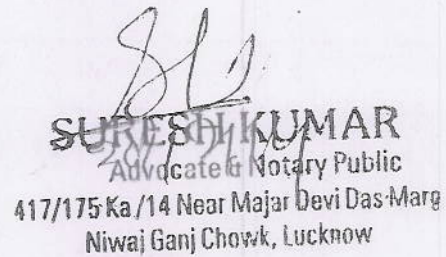 SURESH KUMAR
Advocate & Notary Public
417/175 Ka/14 Near Majar Devi Das Marg
Niwaj Ganj Chowk, Lucknow